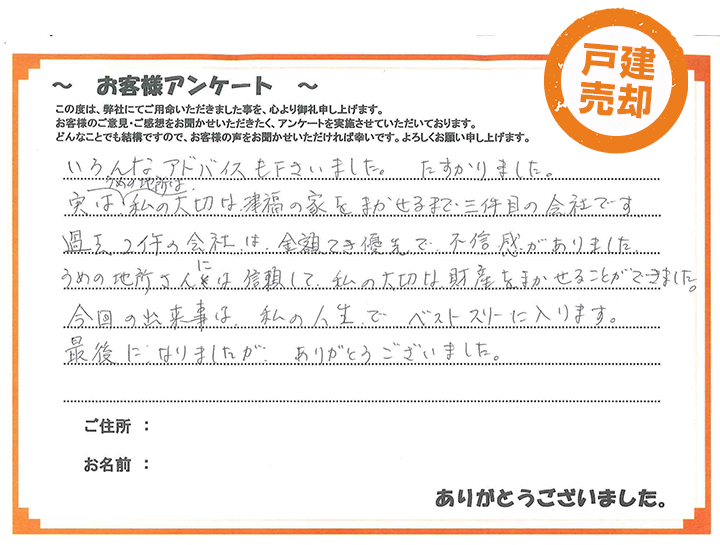 戸建
売却
～ お客様アンケート ～
この度は、弊社にてご用命いただきました事を、心より御礼申し上げます。
お客様のご意見・ご感想をお聞かせいただきたく、アンケートを実施させていただいております。
どんなことでも結構ですので、お客様の声をお聞かせいただければ幸いです。よろしくお願い申し上げます。
いろんなアドバイスも下さいました。 たすかりました。
うめの地所は
実は、私の大切な津福の家をまかせるまで三件目の会社です
過去2件の会社は、金額てき優先で、不信感がありました。
うめの地所さんには信頼して、私の大切な財産をまかせることができました。
今回の出来事は、私の人生で ベストスリーに入ります。
最後になりましたが ありがとうございました。
ご住所 ：
お名前 ：
ありがとうございました。